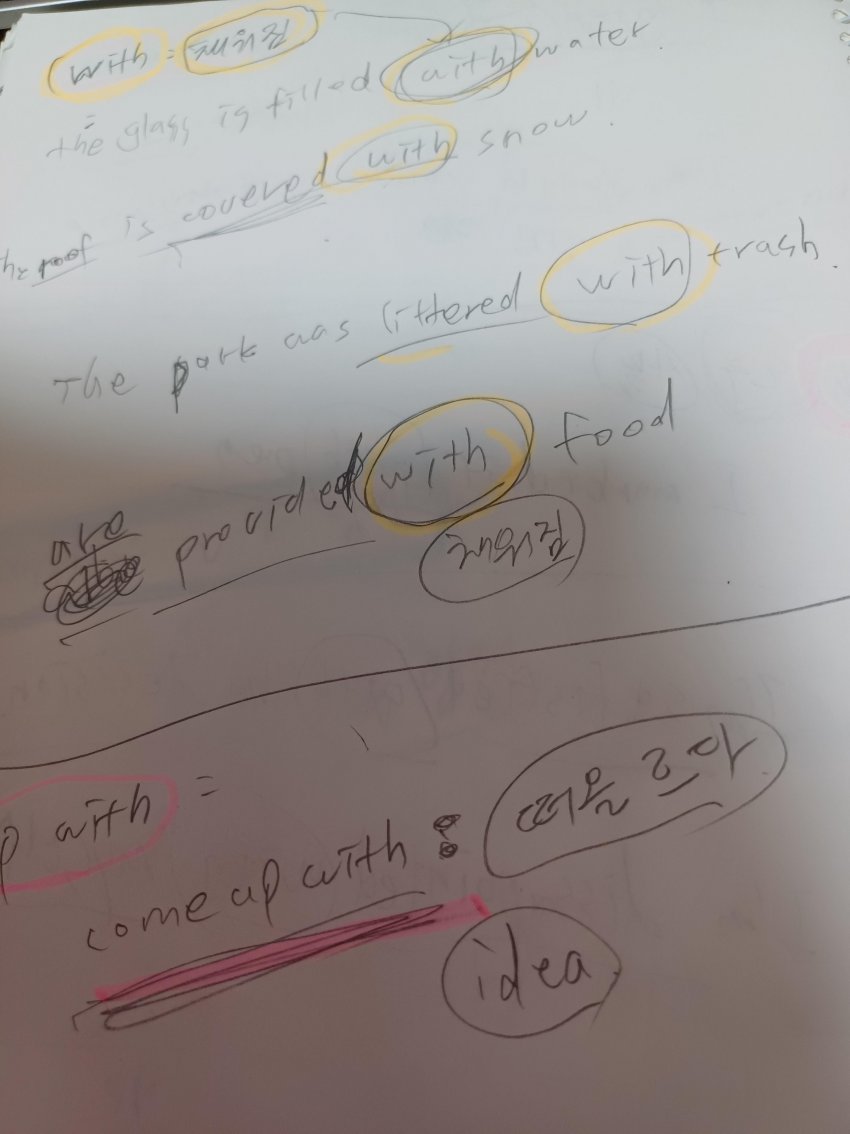 with = 채워짐
the glass is filled with water.
the roof is covered with snow.
The park was littered with trash.
are provided with food
채워짐
p with =
come up with : 떠올르아
idea